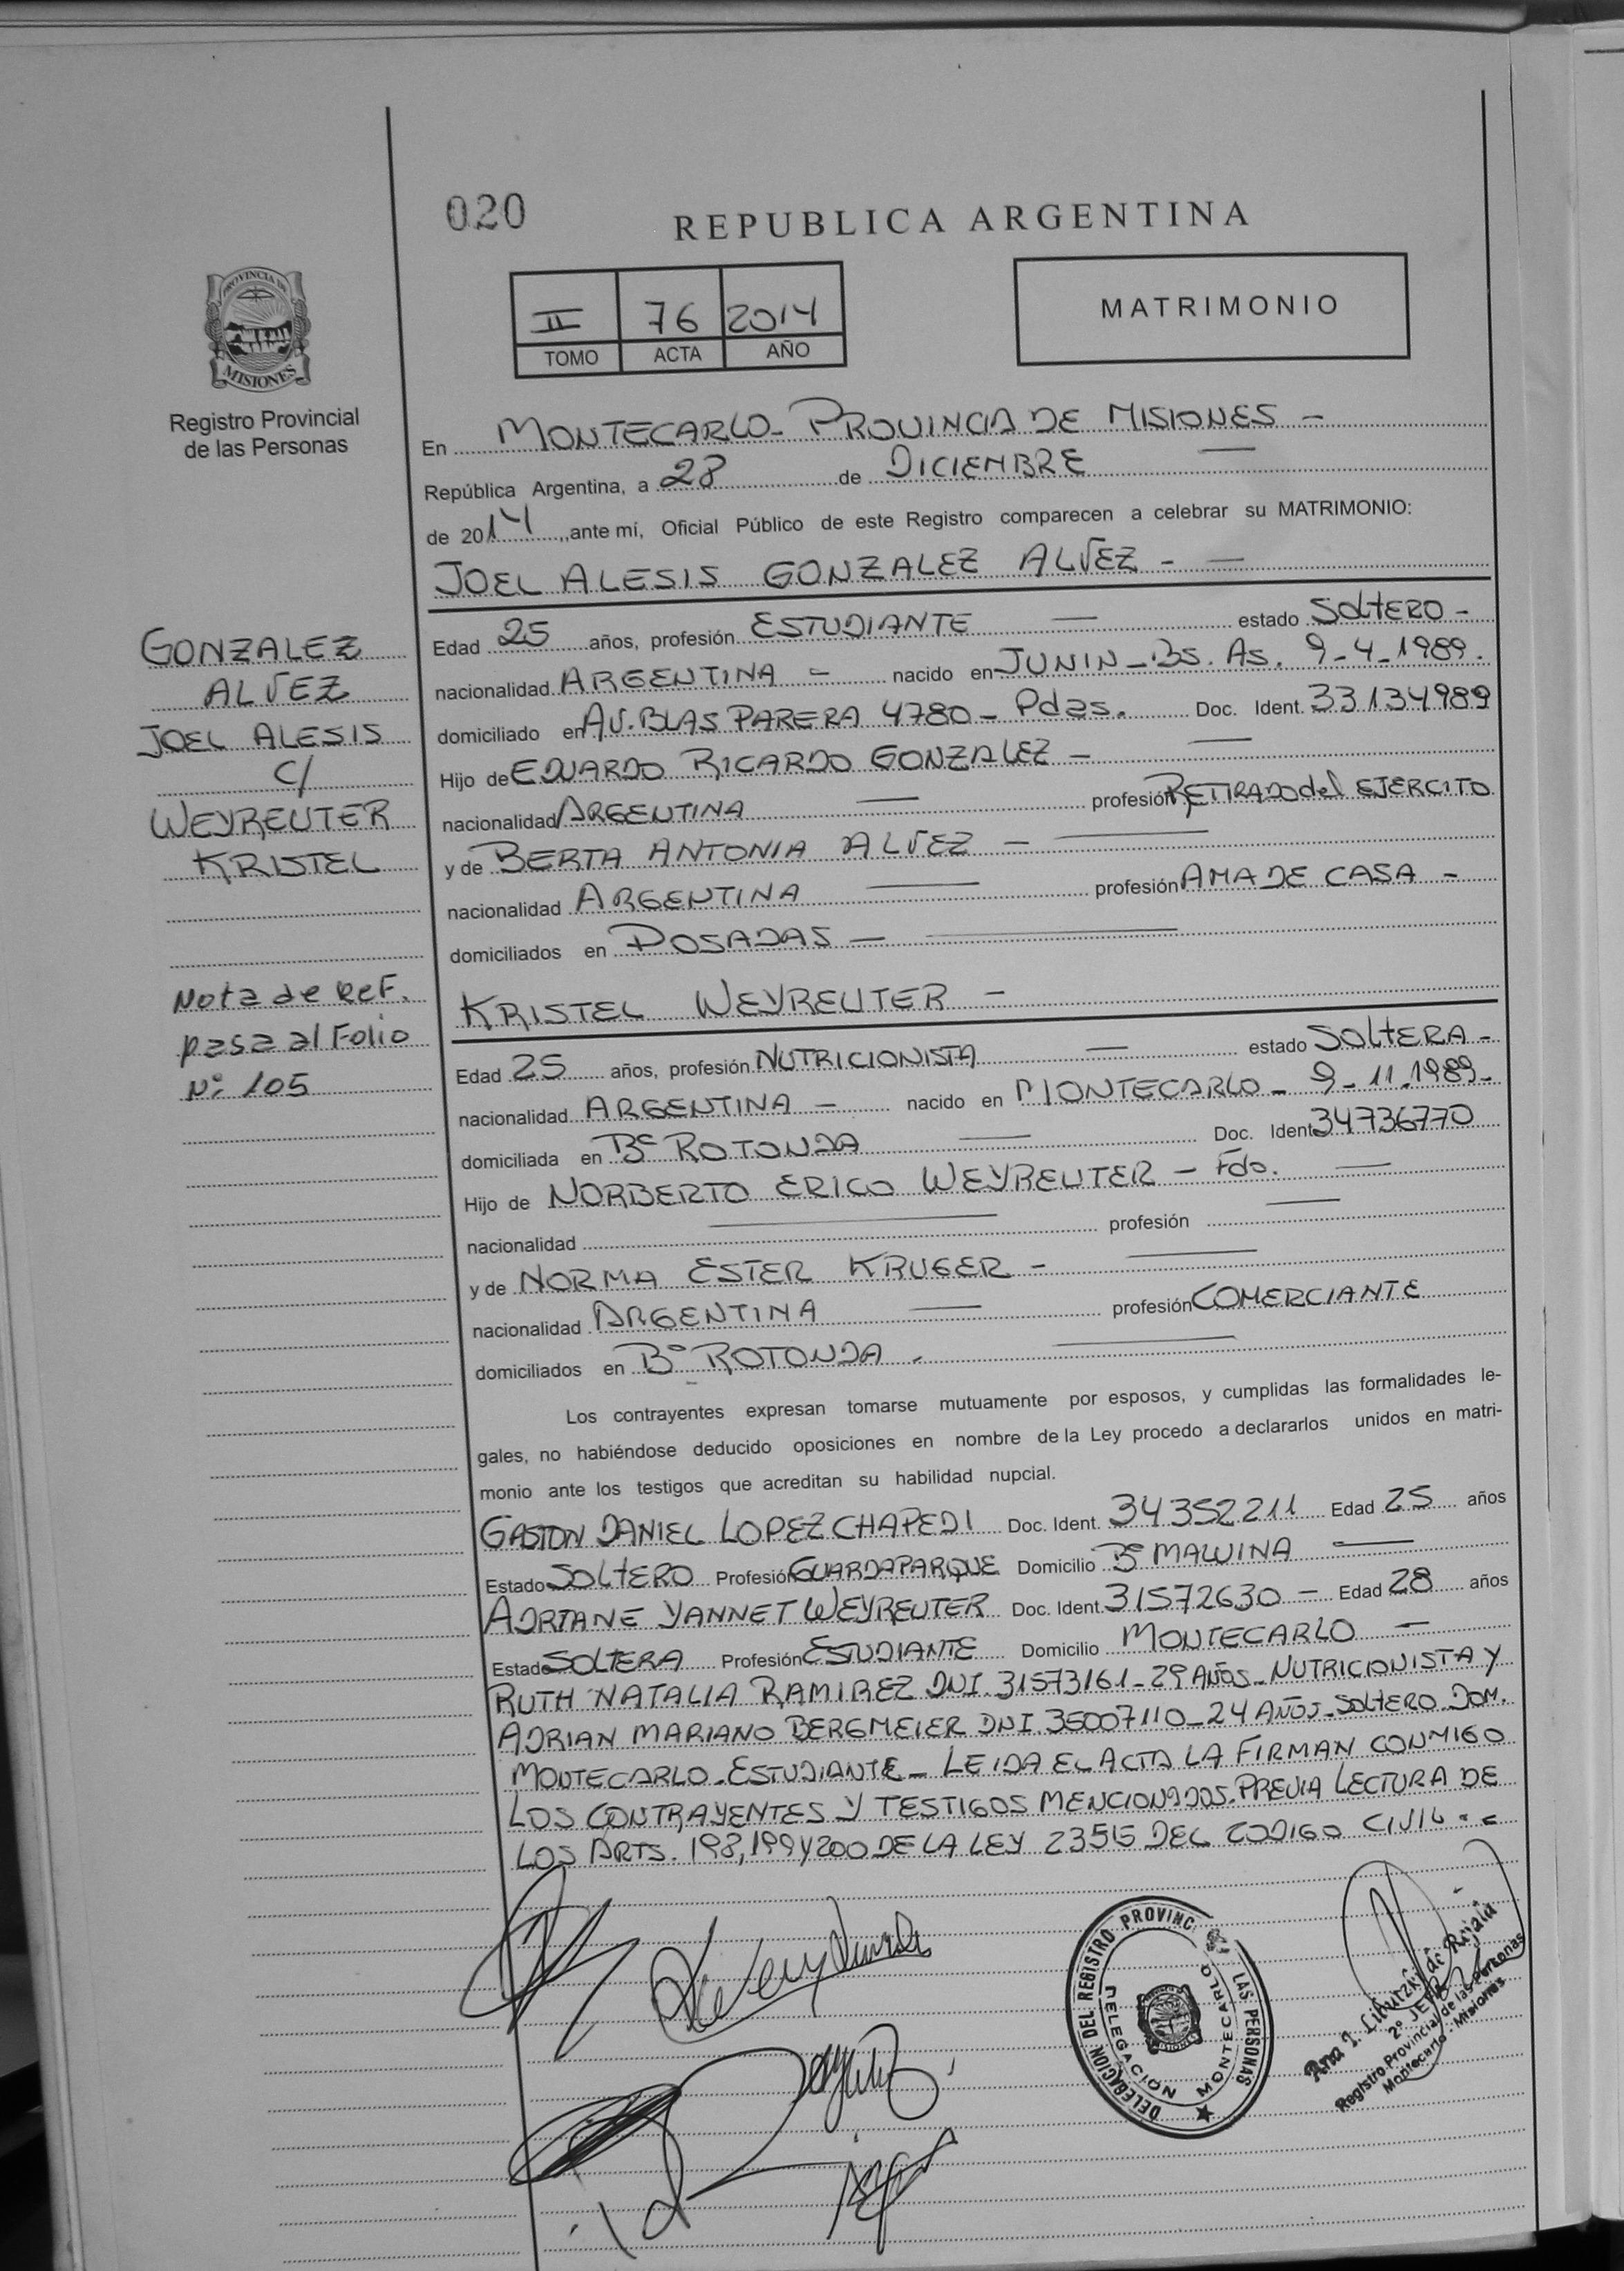 020
REPUBLICA ARGENTINA
PROVINCIA DE
MISIONES
Registro Provincial
de las Personas
II 76 2014
TOMO ACTA AÑO
MATRIMONIO
En MONTECARLO - PROVINCIA DE MISIONES -
República Argentina, a 28 de DICIEMBRE
de 2014, ante mí, Oficial Público de este Registro comparecen a celebrar su MATRIMONIO:
JOEL ALESIS GONZALEZ ALVEZ - -
GONZALEZ
ALVEZ
JOEL ALESIS
C/
WEYREUTER
KRISTEL
Nota de Ref.
pasa al Folio
Nº 105
Edad 25 años, profesión ESTUDIANTE - estado SOLTERO -
nacionalidad ARGENTINA - nacido en JUNIN - BS. AS. 9-4-1989.
domiciliado en AV. BLAS PARERA 4780 - Pdas. Doc. Ident. 33134989
Hijo de EDUARDO RICARDO GONZALEZ -
nacionalidad ARGENTINA - profesión RETIRADO del EJERCITO
y de BERTA ANTONIA ALVEZ -
nacionalidad ARGENTINA - profesión AMA DE CASA -
domiciliados en POSADAS -
KRISTEL WEYREUTER -
Edad 25 años, profesión NUTRICIONISTA - estado SOLTERA -
nacionalidad ARGENTINA - nacido en MONTECARLO - 9-11-1989-
domiciliada en Bº ROTONDA - Doc. Ident. 34736770
Hijo de NORBERTO ERICO WEYREUTER - Fdo. -
nacionalidad - profesión -
y de NORMA ESTER KRUGER -
nacionalidad ARGENTINA - profesión COMERCIANTE
domiciliados en Bº ROTONDA -
Los contrayentes expresan tomarse mutuamente por esposos, y cumplidas las formalidades le-
gales, no habiéndose deducido oposiciones en nombre de la Ley procedo a declararlos unidos en matri-
monio ante los testigos que acreditan su habilidad nupcial.
GASTON DANIEL LOPEZ CHAPEDI Doc. Ident. 34352211 Edad 25 años
Estado SOLTERO Profesión GUARDAPARQUE Domicilio Bº MALVINA -
ADRIANE YANNET WEYREUTER Doc. Ident. 31572630 - Edad 28 años
Estado SOLTERA Profesión ESTUDIANTE Domicilio MONTECARLO -
RUTH NATALIA RAMIREZ DNI. 31573161 - 29 AÑOS - NUTRICIONISTA Y
ADRIAN MARIANO BERGMEIER DNI. 36007110 - 24 AÑOS - SOLTERO. DOM.
MONTECARLO - ESTUDIANTE - LEIDA EL ACTA LA FIRMAN CONMIGO
LOS CONTRAYENTES Y TESTIGOS MENCIONADOS. PREVIA LECTURA DE
LOS ARTS. 198, 199 Y 200 DE LA LEY 23515 DEL CODIGO CIVIL. -
DELEGACION DEL REGISTRO PROVINC LAS PERSONAS
DELEGACIÓN MONTECARLO
Ana I. de
2º JEFE
Registro Provincial de las Personas
Montecarlo - Misiones